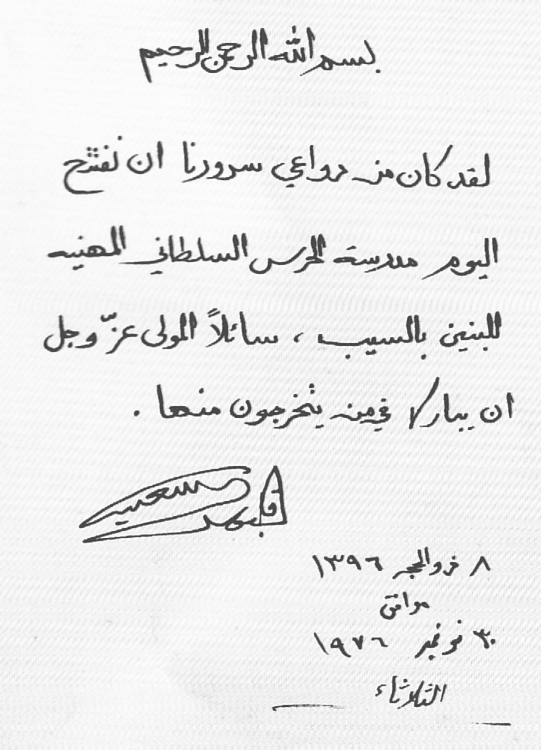 بسم الله الرحمن الرحيم
لقد كان من دواعي سرورنا ان نفتتح
اليوم مدرسة الحرس السلطاني المهنيه
للبنين بالسيب ، سائلاً المولى عزّ وجل
ان يبارك في من يتخرجون منها .
قابوس بن سعيد
٨ ذو الحجه ١٣٩٦
موافق
٣٠ نوفمبر ١٩٧٦
الثلاثاء